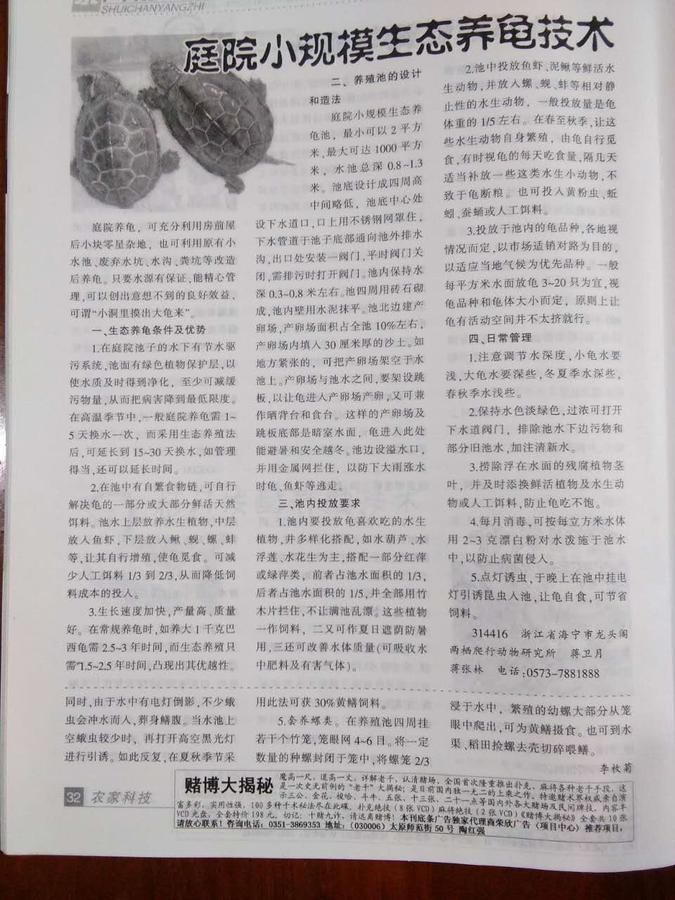 SHUICHANYANGZHI
庭院小规模生态养龟技术
庭院养龟，可充分利用房前屋
后小块零星杂地，也可利用原有小
水池、废弃水坑、水沟、粪坑等改造
后养龟。只要水源有保证，能精心管
理，可以创出意想不到的良好效益，
可谓“小洞里摸出大龟来”。
一、生态养龟条件及优势
1.在庭院池子的水下有节水驱
污系统，池面有绿色植物保护层，以
使水质及时得到净化，至少可减缓
污物量，从而把病害降到最低限度。
在高温季节中，一般庭院养龟需1~
5天换水一次，而采用生态养殖法
后，可延长到15~30天换水，如管理
得当，还可以延长时间。
2.在池中有自繁食物链，可自行
解决龟的一部分或大部分鲜活天然
饵料。池水上层放养水生植物，中层
放人鱼虾，下层放人鳅、蚬、螺、蚌
等，让其自行增殖，使龟觅食。可减
少人工饵料1/3到2/3，从而降低饲
料成本的投人。
3.生长速度加快，产量高、质量
好。在常规养龟时，如养大1千克巴
西龟需2.5~3年时间，而生态养殖只
需1.5~2.5年时间，凸现出其优越性。
二、养殖池的设计
和造法
庭院小规模生态养
龟池，最小可以2平方
米，最大可达1000平方
米，水池总深0.8~1.3
米。池底设计成四周高
中间略低，池底中心处
设下水道口，口上用不锈钢网罩住，
下水管道于池子底部通向池外排水
沟，出口处安装一阀门，平时阀门关
闭，需排污时打开阀门。池内保持水
深0.3~0.8米左右。池四周用砖石砌
成，池内壁用水泥抹平。池北边建产
卵场，产卵场面积占全池10%左右，
产卵场内填入30厘米厚的沙土。如
地方紧张的，可把产卵场架空于水
池上。产卵场与池水之间，要架设跳
板，以让龟进人产卵场产卵，又可兼
作晒背台和食台。这样的产卵场及
跳板底部是暗室水面，龟进人此处
能避暑和安全越冬。池边设溢水口，
并用金属网拦住，以防下大雨涨水
时龟、鱼虾等逃走。
三、池内投放要求
1.池内要投放龟喜欢吃的水生
植物，并多样化搭配，如水葫芦、水
浮莲、水花生为主，搭配一部分红萍
或绿萍类，前者占池水面积的1/3，
后者占池水面积的1/5，并全部用竹
木片拦住，不让满池乱漂。这些植物
一作饲料，二又可作夏日遮荫防暑
用，三还可改善水体质量（可吸收水
中肥料及有害气体）。
2.池中投放鱼虾、泥鳅等鲜活水
生动物，并放人螺、蚬、蚌等相对静
止性的水生动物，一般投放量是龟
体重的1/5左右。在春至秋季，让这
些水生动物自身繁殖，由龟自行觅
食，有时视龟的每天吃食量，隔几天
适当补放一些这类水生小动物，不
致于龟断粮。也可投人黄粉虫、蚯
蚓、蚕蛹或人工饵料。
3.投放于池内的龟品种，各地视
情况而定，以市场适销对路为目的，
以适应当地气候为优先品种。一般
每平方米水面放龟3~20只为宜，视
龟品种和龟体大小而定，原则上让
龟有活动空间并不太挤就行。
四、日常管理
1.注意调节水深度，小龟水要
浅，大龟水要深些，冬夏季水深些，
春秋季水浅些。
2.保持水色淡绿色，过浓可打开
下水道阀门，排除池水下边污物和
部分旧池水，加注清新水。
3.捞除浮在水面的残腐植物茎
叶，并及时添换鲜活植物及水生动
物或人工饵料，防止龟吃不饱。
4.每月消毒，可按每立方米水体
用2~3克漂白粉对水泼施于池水
中，以防止病菌侵人。
5.点灯诱虫，于晚上在池中挂电
灯引诱昆虫人池，让龟自食，可节省
饲料。
314416 浙江省海宁市龙头阁
两栖爬行动物研究所 蒋卫月
蒋张林 电话：0573-7881888
同时，由于水中有电灯倒影，不少蛾
虫会冲水而人，葬身鳝腹。当水池上
空蛾虫较少时，再打开高空黑光灯
进行引诱。如此反复，在夏秋季节采
用此法可获30%黄鳝饲料。
5.套养螺类。在养殖池四周挂
若干个竹笼，笼眼网4~6目。将一定
数量的种螺封闭于笼中，将螺笼2/3
浸于水中，繁殖的幼螺大部分从笼
眼中爬出，可为黄鳝摄食。也可到水
渠、稻田捡螺去壳切碎喂鳝。
李枚菊
32 农家科技
赌博大揭秘
魔高一尺，道高一丈，详解老千，认清赌场，全国首次隆重推出扑克、麻将各种老千手段，这
是一次史无前例的“老千”大揭秘；是目前国内独一无二的上乘之作。特邀赌术界权威亲自演
示三公、金花、梭哈、牛牛、五张、十三张、二十一点等国内外各大赌场及民间牌技，内容丰
富多彩，实用性强，100多种千术秘法尽在此碟。扑克绝技（8张VCD）麻将绝技（2张VCD）《赌博大揭秘》全套共10张
VCD光盘，全套特价198元。切记：十赌九诈，请远离赌博！本刊底条广告独家代理商荣欣广告（项目中心）推荐项目，
请放心联系！咨询电话：0351-3869353 地址：（030006）太原师范街50号 陶红强